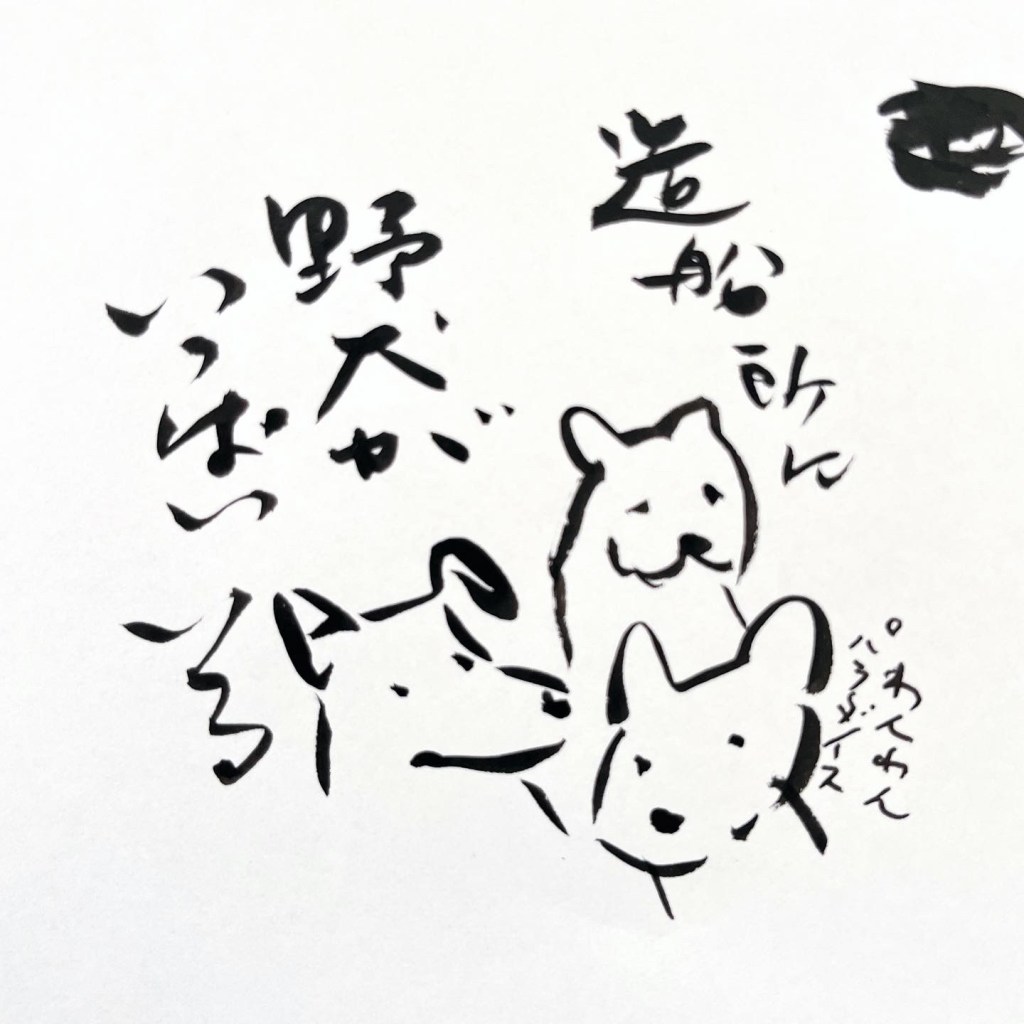 造船所に
野犬が
いっぱい
いる
わんわん
パラダイス